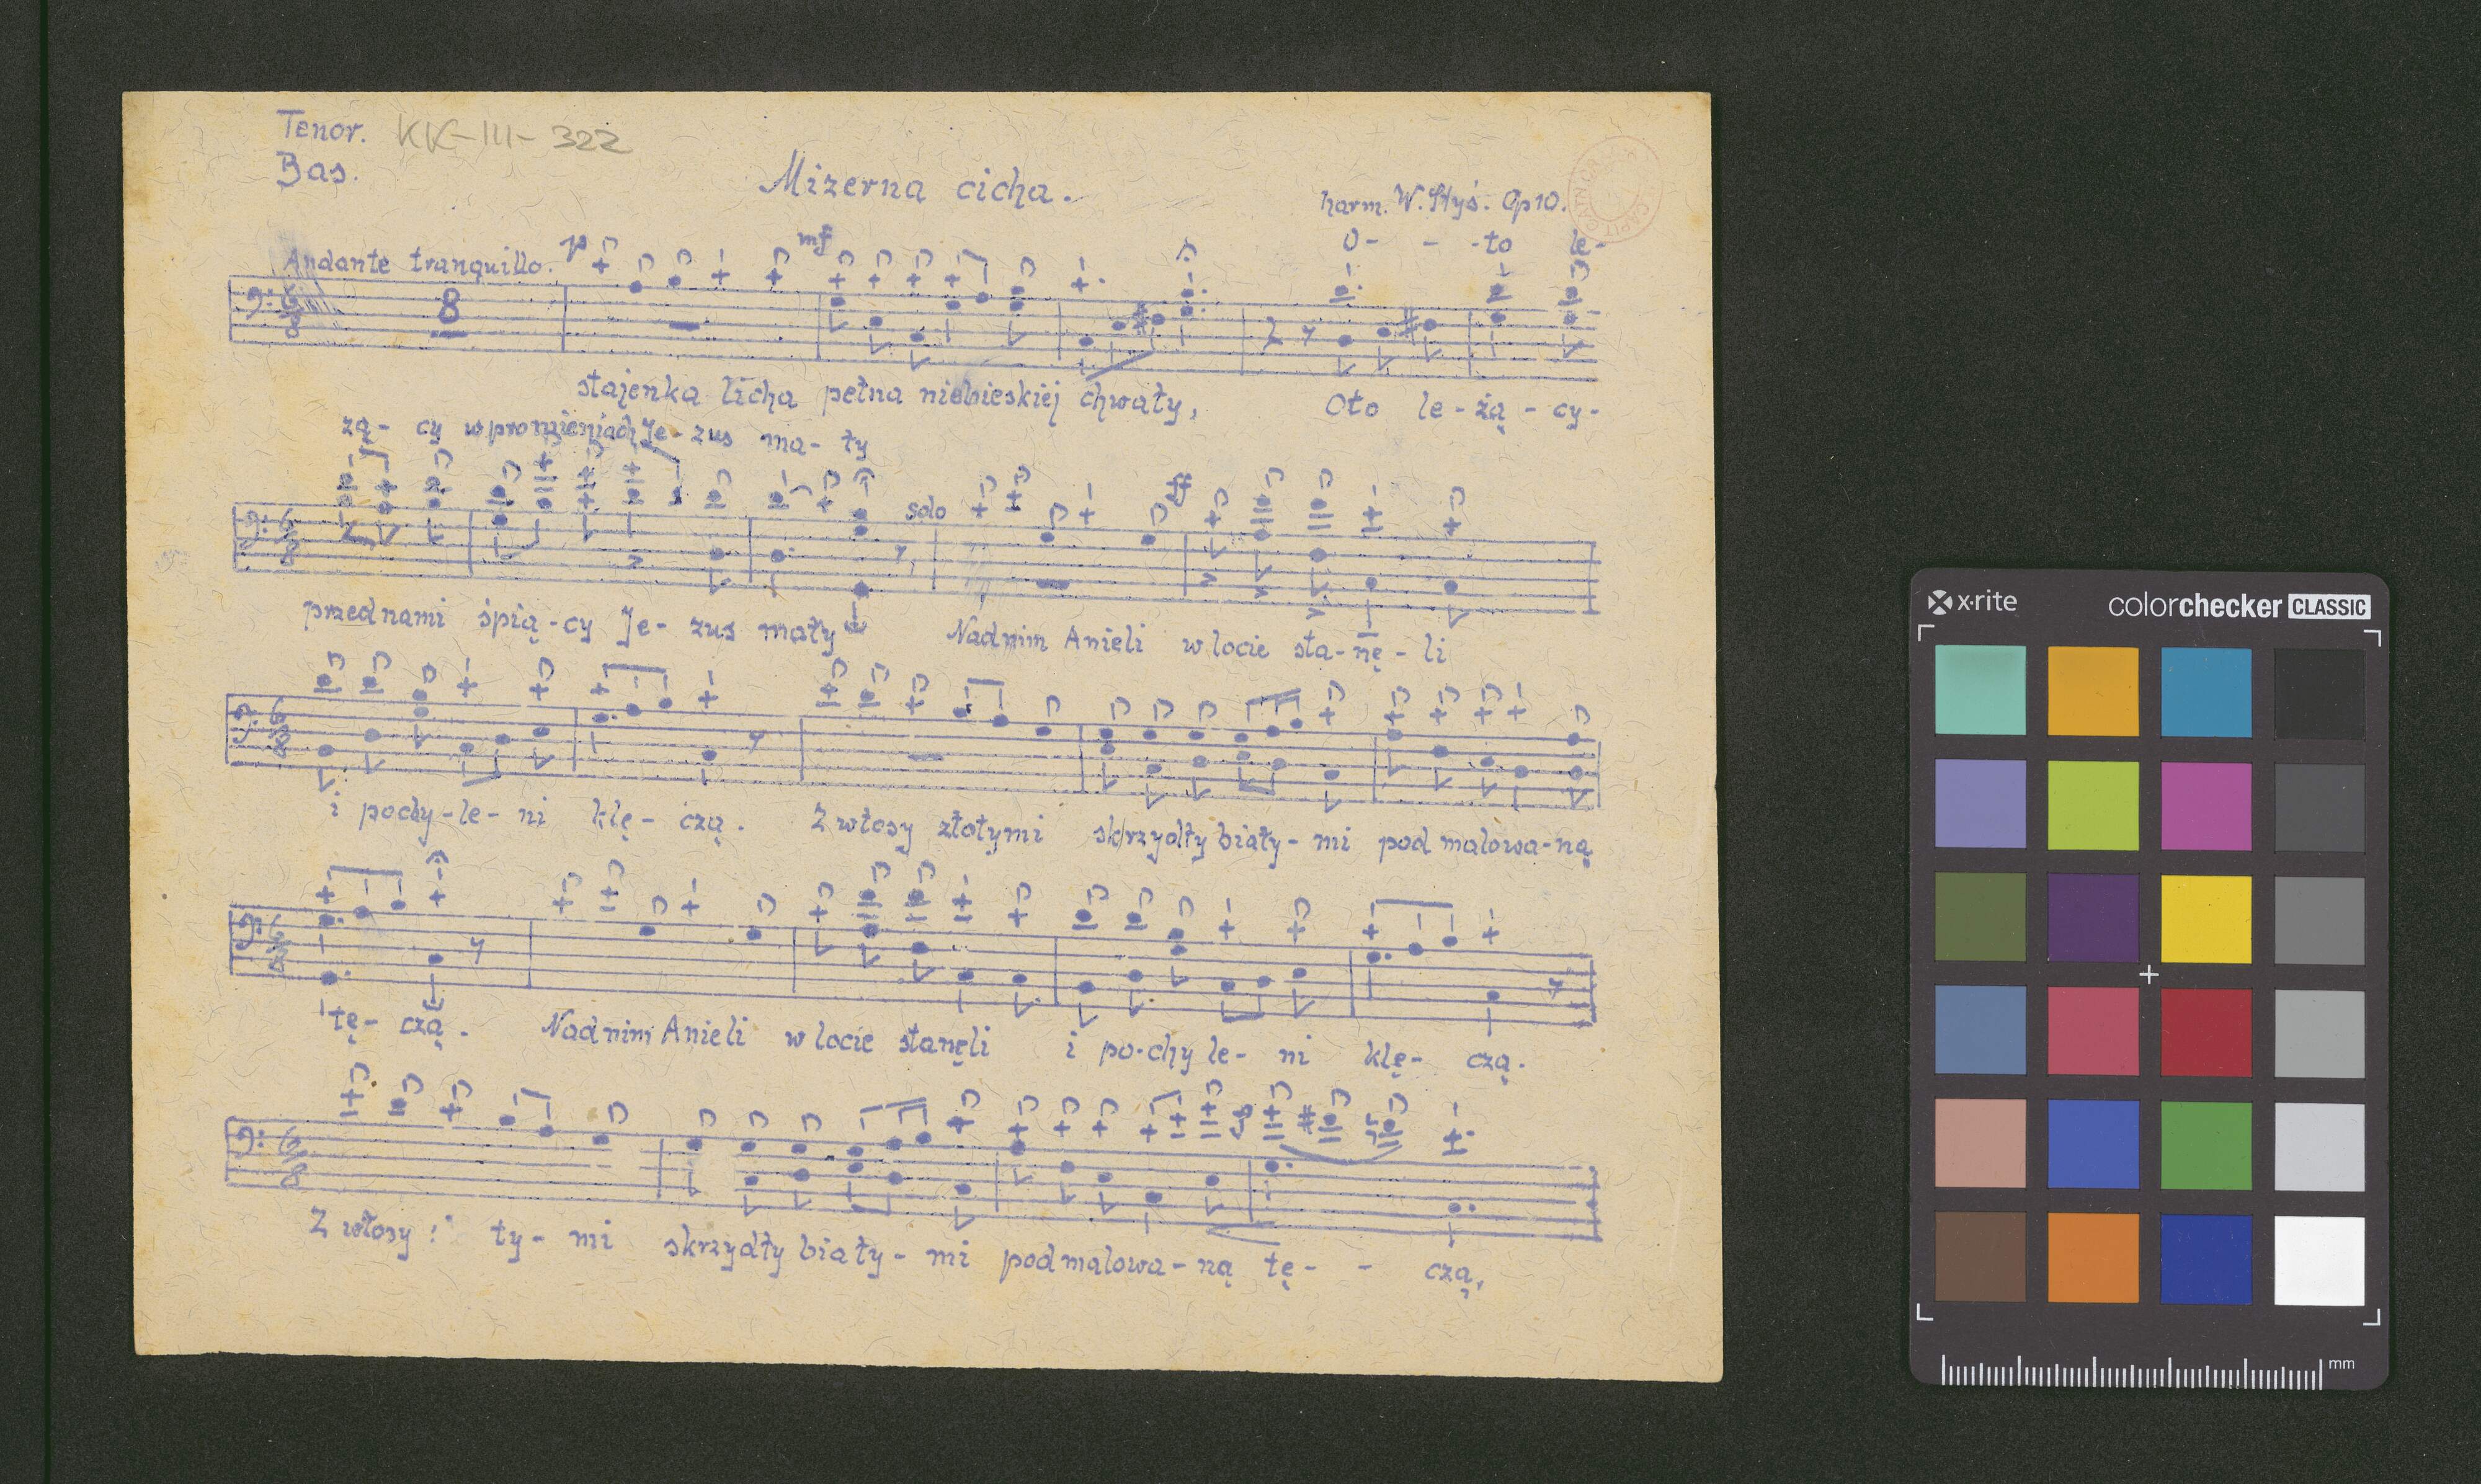 Tenor. KK-III-322
Bas.
Mizerna cicha.
harm. W. Styś. Op 10.
Andante tranquillo. p mf O- - -to le-
8
stajenka licha pełna niebieskiej chwały, Oto le-żą-cy-
żą- cy w promieniach Je-zus ma-ły
solo ff
przed nami śpią-cy Je- zus mały Nad nim Anieli w locie sta-nę-li
i pochy-le-ni klę- czą. Z włosy złotymi skrzydły biały-mi pod malowa-ną
tę- czą. Nad nim Anieli w locie stanęli i po-chy le- ni klę- czą.
Z włosy ty- mi skrzydły biały- mi pod malowa-ną tę- - czą,
x·rite colorchecker CLASSIC
mm